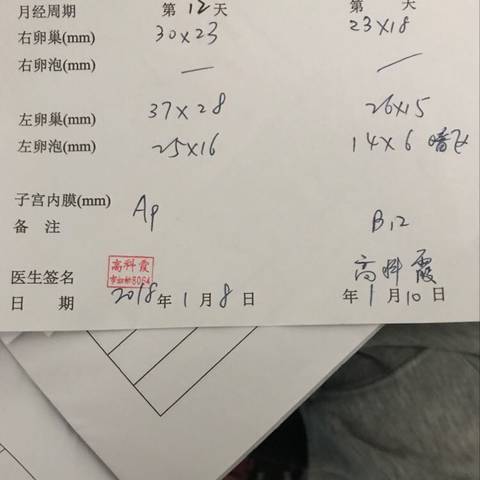 月经周期 第12天 第 天
右卵巢(mm) 30×23 23×18
右卵泡(mm) — —
左卵巢(mm) 37×28 26×15
左卵泡(mm) 25×16 14×6 暗区
子宫内膜(mm) A9 B12
备 注
医生签名 高科霞 高科霞
日 期 2018年1月8日 年1月10日